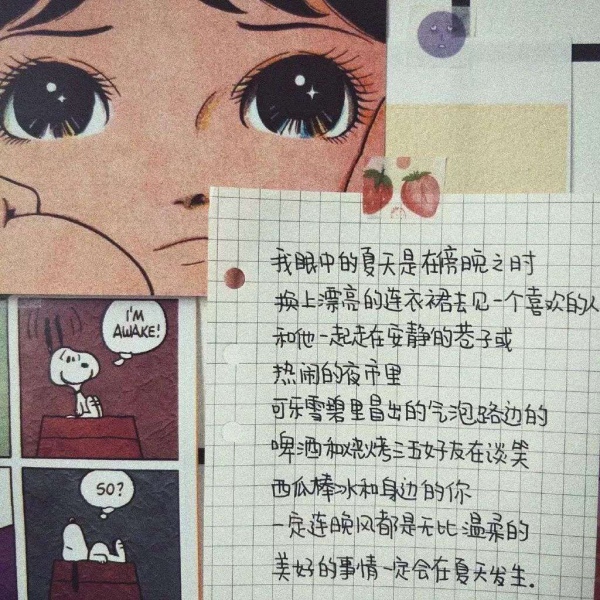 I'M
AWAKE!
SO?
我眼中的夏天是在傍晚之时
换上漂亮的连衣裙去见一个喜欢的人
和他一起走在安静的巷子或
热闹的夜市里
可乐雪碧里冒出的气泡路边的
啤酒和烧烤三五好友在谈笑
西瓜棒冰和身边的你
一定连晚风都是无比温柔的
美好的事情一定会在夏天发生.